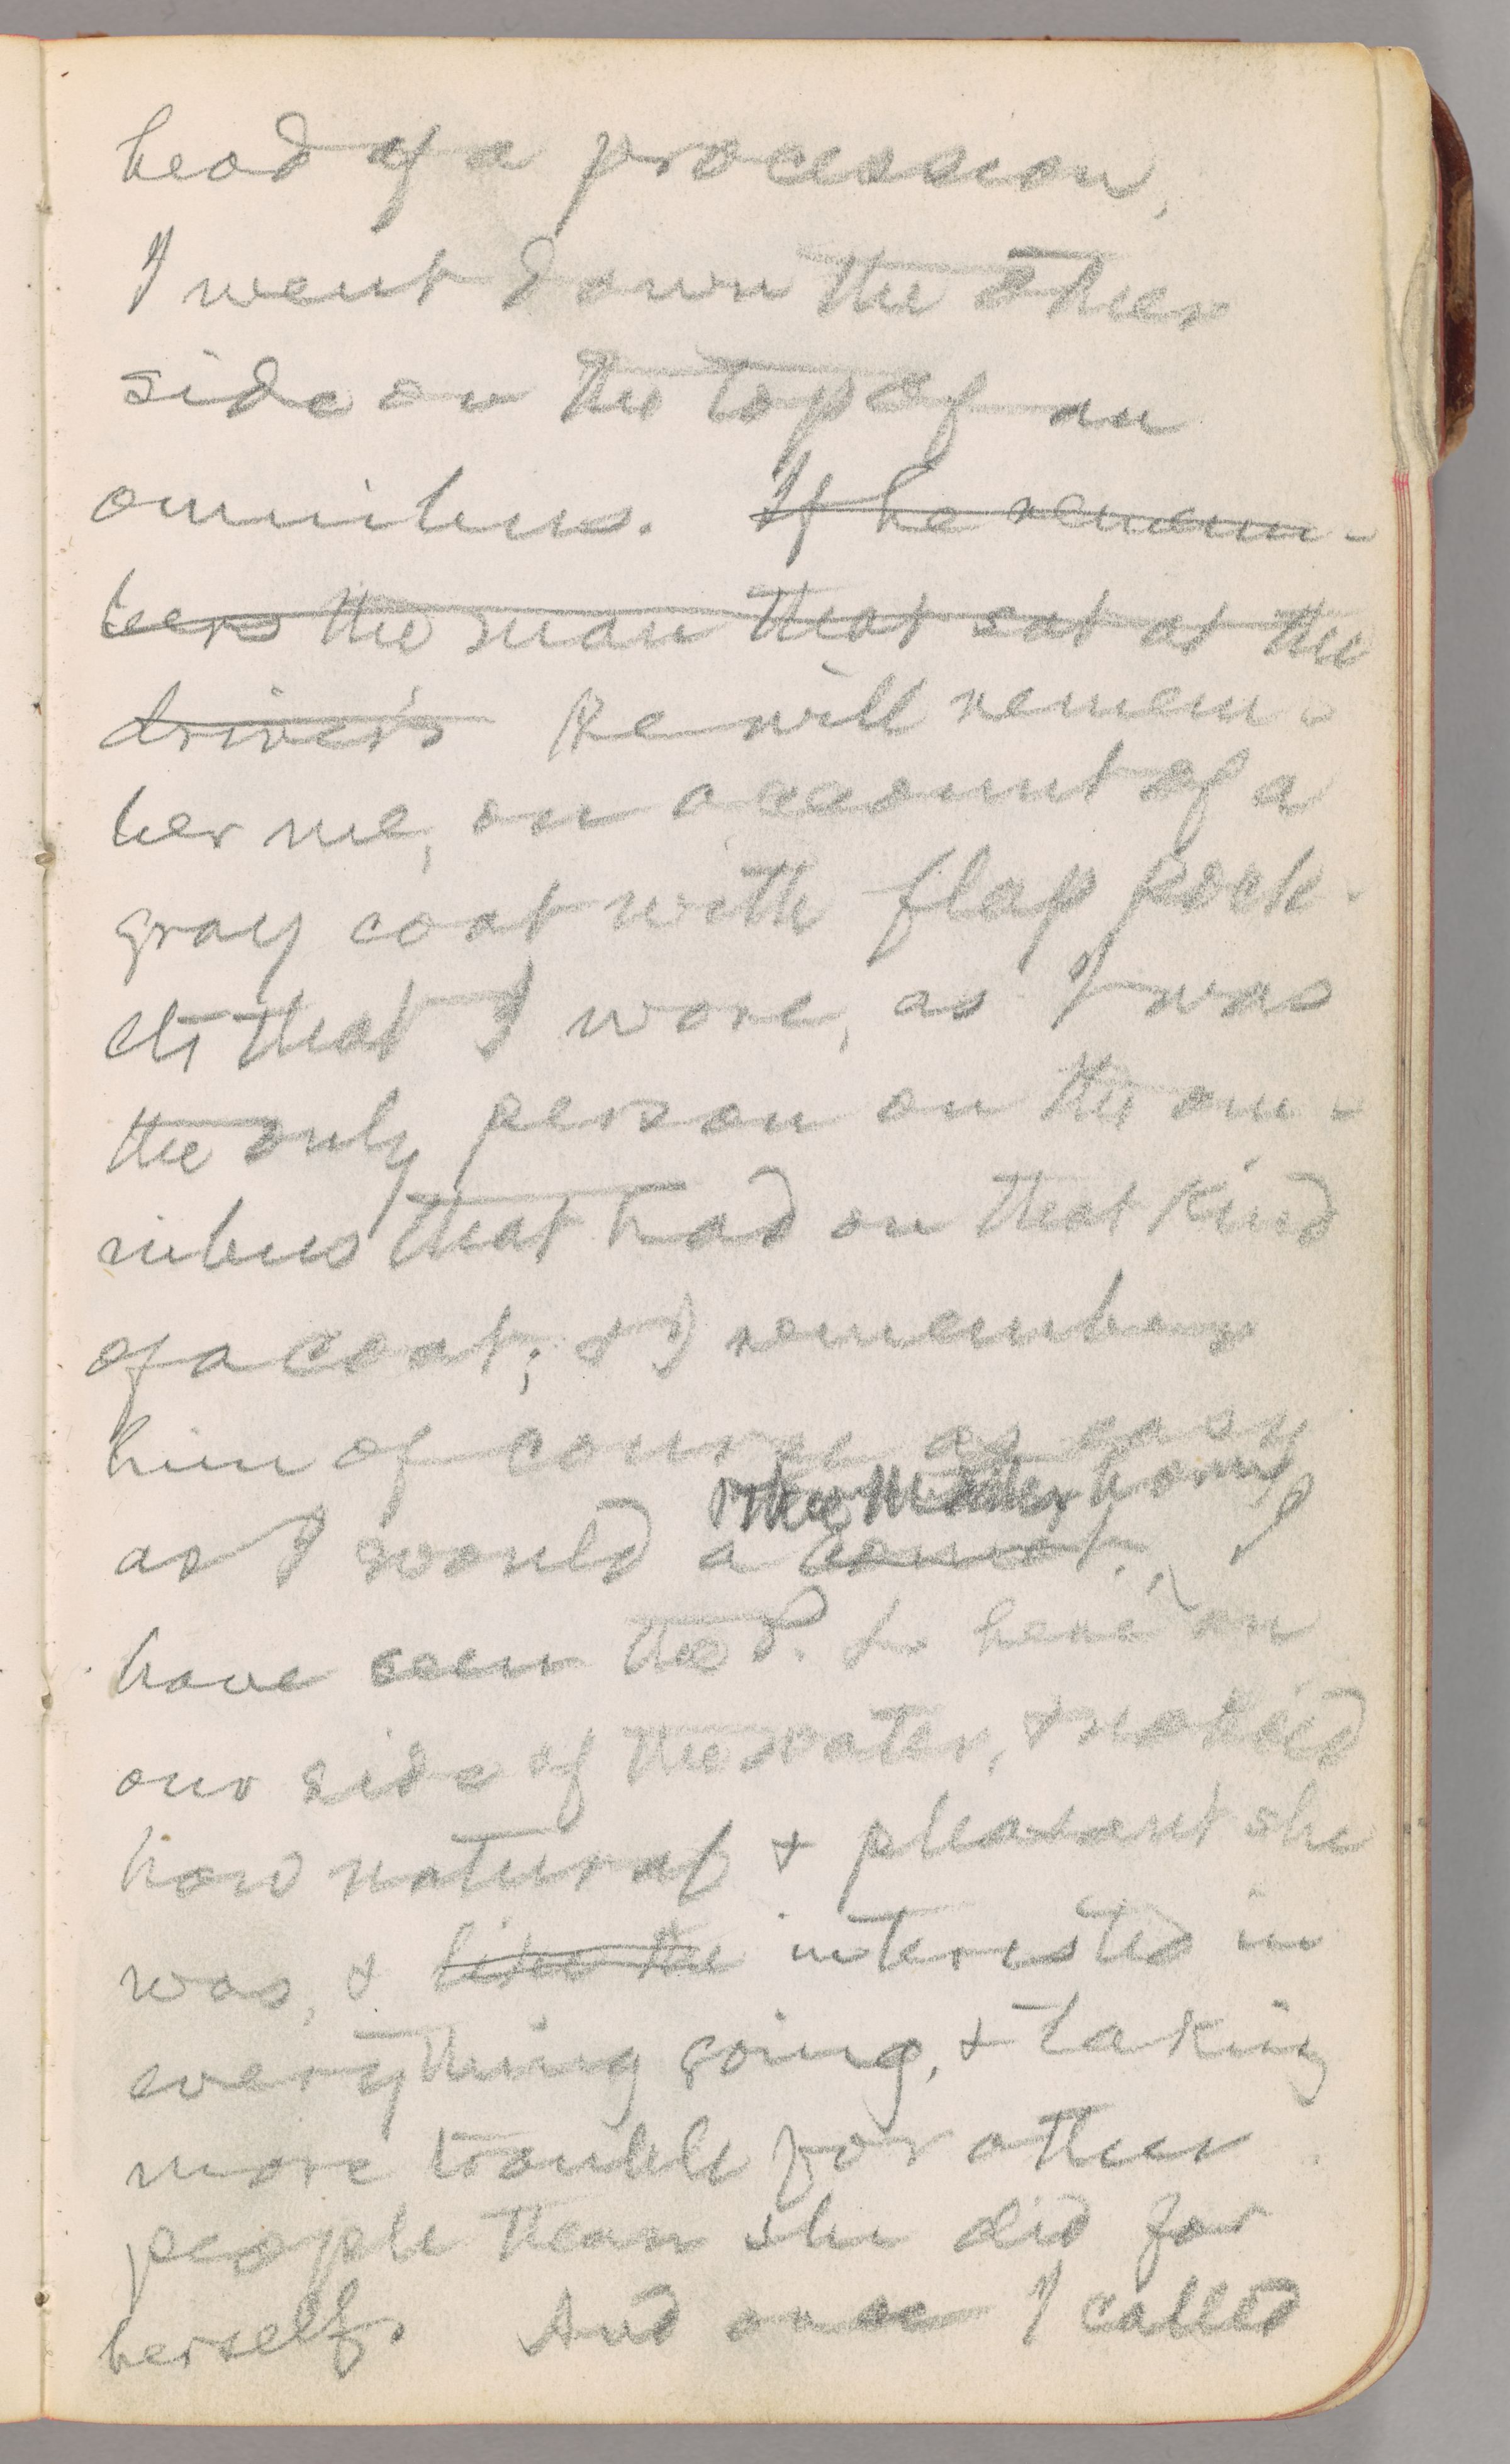 head of a procession,
I went down the other
side on the top of an
omnibus. If he remem-
bers the man that sat at the
driver's He will remem-
ber me, on account of a
gray coat with flap pock-
ets that I wore, as I was
the only person on the om-
nibus that had on that kind
of a coat; & I remember
him of course as easy
as I would a comet. I
have seen the P. L. here on
our side of the water, & noticed
how natural & pleasant she
was, & like the interested in
everything going, & taking
more trouble for other
people than she did for
herself. And once I called